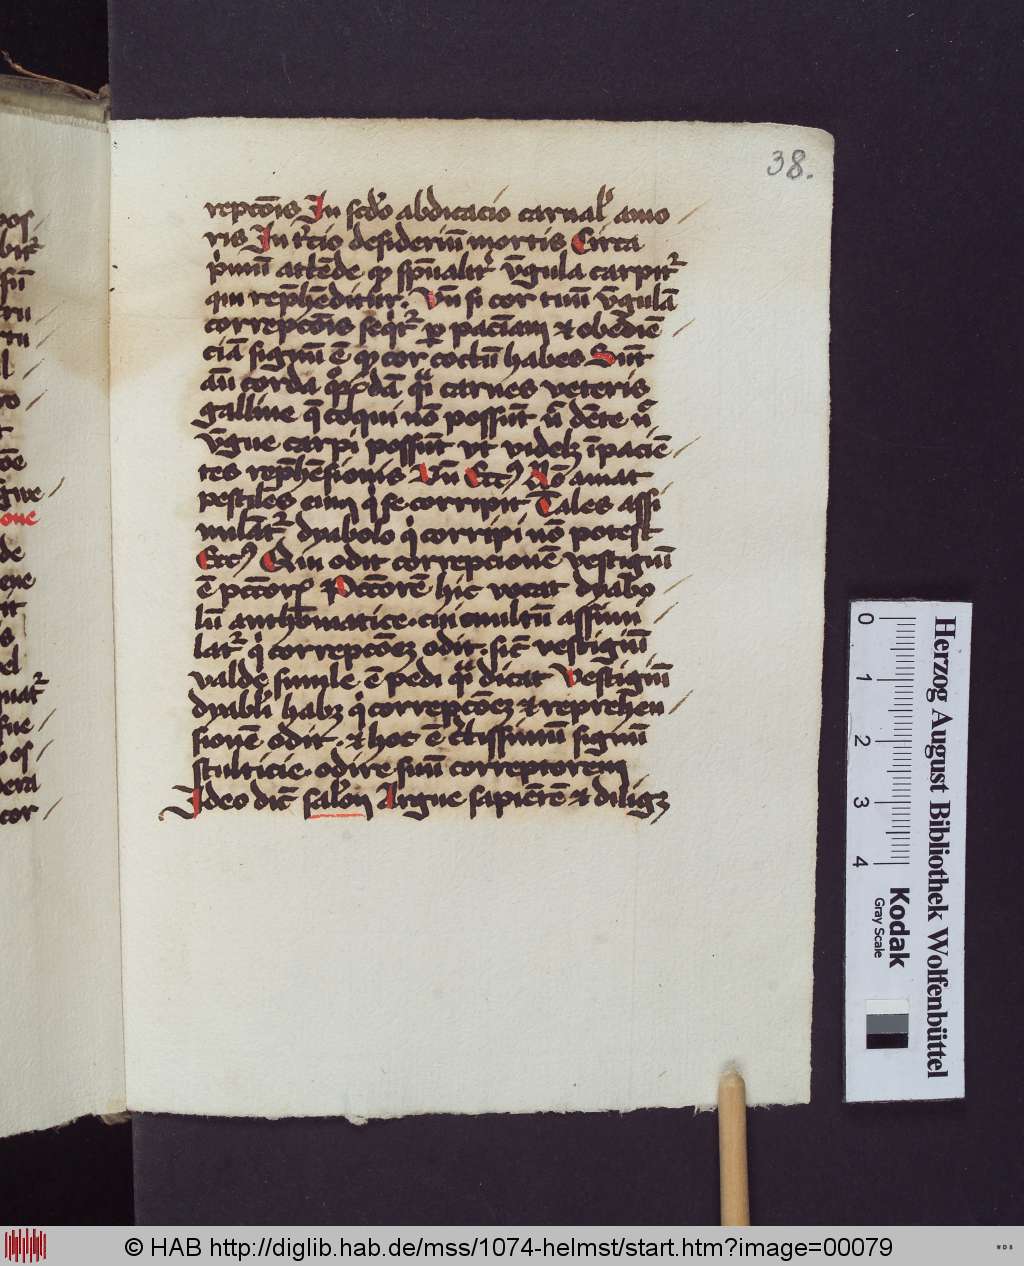 38.
repcōis In scd̄o abdicacio carnal' amo
ris In t'cio desideriū mortis Circa
p'mū attēde qp sp̄ualit' v̄gula carpit'
qui rep̄hēditur. Vn̄ si cor tuū v̄gulā
correpcōis seq't' p pacīam et obediē
ciā signū ē qp cor coctū habes Sūt
aū corda q'dā q'i carnes veteris
galline q̄ coqui nō possūt n̄ dēte n̄
v̄gue carpi possūt vt videlz īpaciē
tes rep̄hēsionis Vn̄ Ecc' Nō amat
pestilēs eum q' se corripit Tales assi
milāt' dyabolo q' corripi nō potest
Ecc' Qui odit correpcionē vestigiū
ē pctōr' Pctōrē hic vocat dyabo
lū anthōmatice. cui multū assim
lat' q' correpcōez odit. sic̄ vestigiū
valde simile ē pedi q'i dicat Vestigiū
dyaboli habz q' correpcōez et reprehen
sionē odit. et hoc ē c̄tissimū signū
stulticie. odire suū correptorem
Ideo dic̄ salon Argue sapiētē et diligz
Herzog August Bibliothek Wolfenbüttel
0 1 2 3 4
Kodak
Gray Scale
© HAB http://diglib.hab.de/mss/1074-helmst/start.htm?image=00079